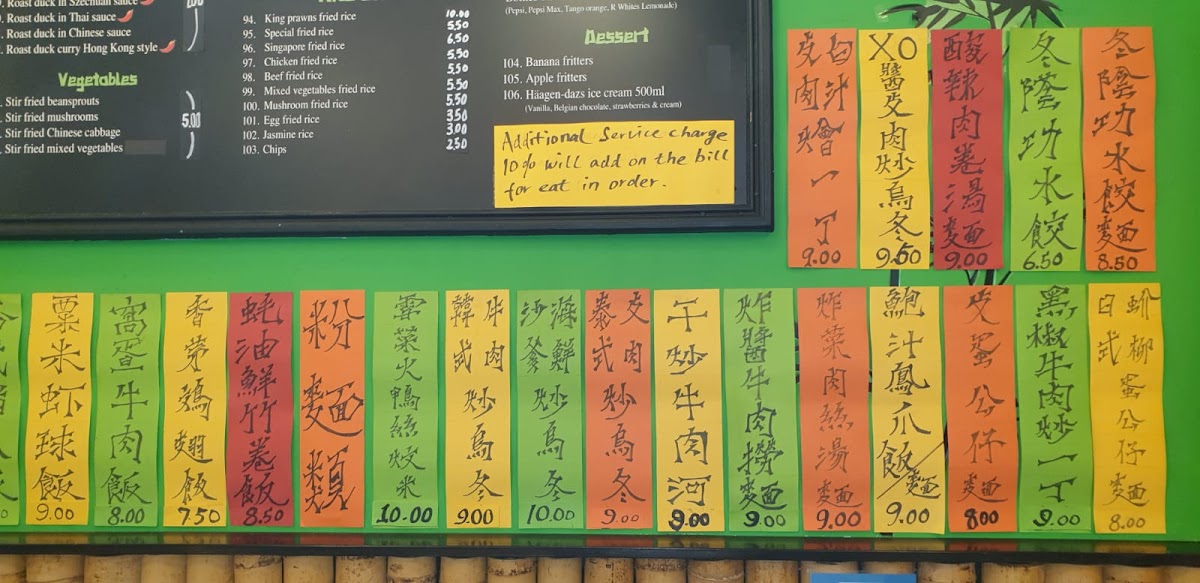 Roast duck in Szechuan sauce
Roast duck in Thai sauce
Roast duck in Chinese sauce
Roast duck curry Hong Kong style
Vegetables
Stir fried beansprouts
Stir fried mushrooms
Stir fried Chinese cabbage
Stir fried mixed vegetables
5.00
94. King prawns fried rice
95. Special fried rice
96. Singapore fried rice
97. Chicken fried rice
98. Beef fried rice
99. Mixed vegetables fried rice
100. Mushroom fried rice
101. Egg fried rice
102. Jasmine rice
103. Chips
10.00
5.50
6.50
5.50
5.50
5.50
5.50
3.50
3.00
2.50
(Pepsi, Pepsi Max, Tango orange, R Whites Lemonade)
Dessert
104. Banana fritters
105. Apple fritters
106. Häagen-dazs ice cream 500ml
(Vanilla, Belgian chocolate, strawberries & cream)
Additional Service charge
10% will add on the bill
for eat in order.
白汁皮肉燴一丁 9.00
XO醬皮肉炒烏冬 9.50
酸辣肉卷湯麵 9.00
冬陰功水餃 6.50
冬陰功水餃麵 8.50
粟米虾球飯 9.00
窩蛋牛肉飯 8.00
香茅鷄翅飯 7.50
蚝油鮮竹卷飯 8.50
粉麵類
雪菜火鴨絲炆米 10.00
韓式牛肉炒烏冬 9.00
沙爹海鮮炒烏冬 10.00
泰式皮肉炒烏冬 9.00
干炒牛肉河 9.00
炸醬牛肉撈麵 9.00
炸菜肉絲湯麵 9.00
鮑汁鳳爪飯/麵 9.00
皮蛋公仔麵 8.00
黑椒牛肉炒一丁 9.00
日式蚧柳蛋公仔麵 8.00